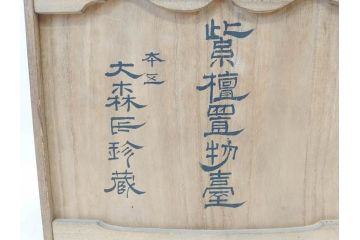 紫檀置物臺
本区
大森氏珍藏